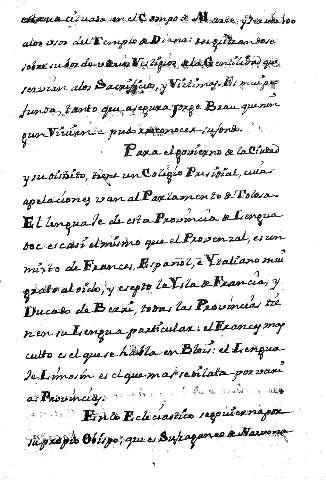 situada en el Campo de Marte, y
a los usos del Templo de Diana:
sobre su borde varios Vestigios de la Gentilidad que
servian a los Sacrificios, y Victimas. Es mui pro
funda, tanto que asegura Jorge Brau que nin
gun Viviente pudo reconocer su fondo.
Para el govierno de la Ciudad
y su distrito, tiene un Colegio Presidial, cuias
apelaciones van al Parlamento de Tolosa.
El lenguaje de esta Provincia de Lengua
doc es casi el mismo que el Provenzal, es un
mixto de Frances, Español, e Ytaliano mui
grato al oido, y esepto la Ysla de Francia, y
Ducado de Berri, todas las Provincias tie
nen su Lengua particular: el Frances mas
culto es el que se habla en Blois: el Lengua
je Limosin es el que mas se dilata por vari
as Provincias.
En lo Eclesiastico se govierna por
su propio Obispo; que es Sufraganeo de Narvona